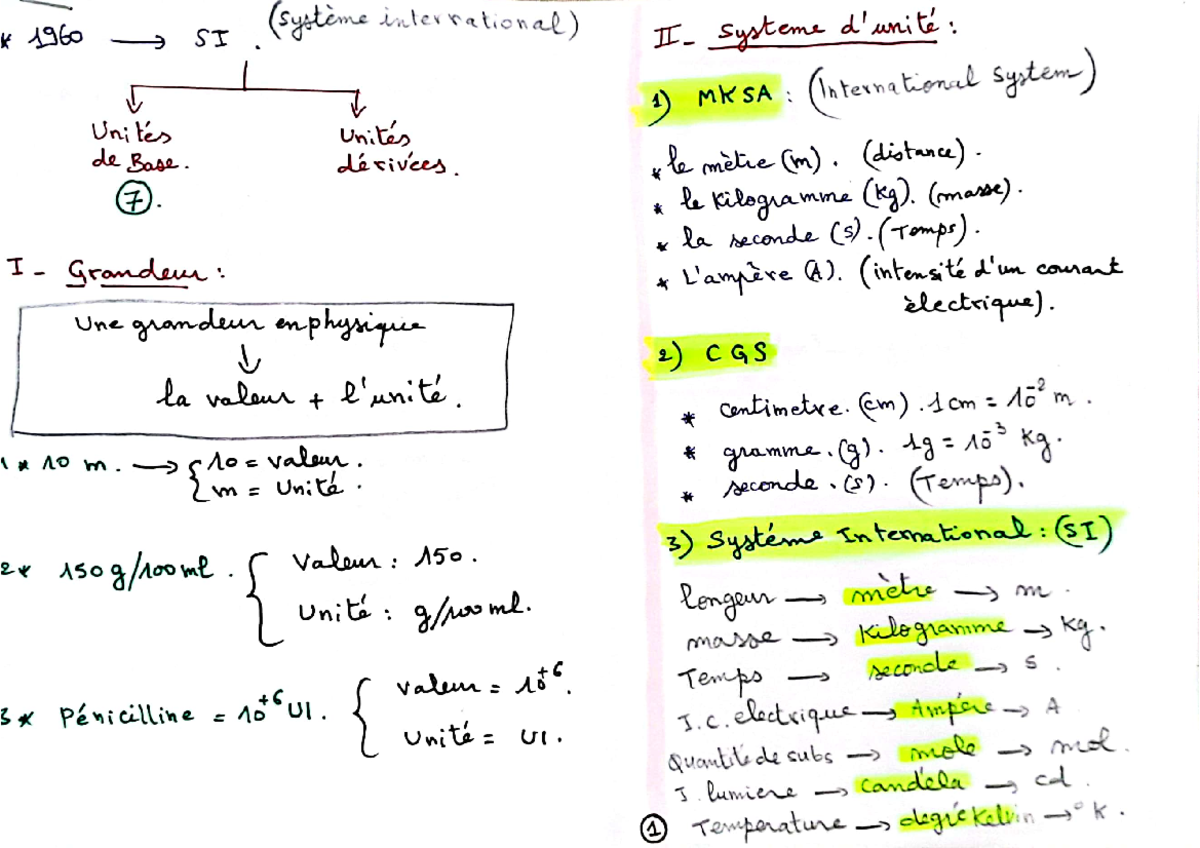 * 1960 → SI . (système international)
Unités de Base. Unités dérivées.
7.
I - Grandeur :
Une grandeur en physique
↓
la valeur + l'unité.
1 * 10 m. → { 10 = valeur.
m = Unité.
2* 150 g/100 ml . { Valeur : 150.
Unité : g/100 ml.
3 * Pénicilline = 10⁺⁶ UI. { valeur = 10⁺⁶.
Unité = UI.
II - Systeme d'unité :
1) MKSA : (International System)
* le mètre (m) . (distance) .
* le Kilogramme (Kg). (masse) .
* la seconde (s) . (Temps) .
* L'ampère (A). (intensité d'un courant
èlectrique).
2) CGS
* centimetre. (cm) . 1 cm = 10⁻² m .
* gramme . (g) . 1g = 10⁻³ Kg.
* seconde . (s) . (Temps).
3) Systéme International : (SI)
longeur → mètre → m .
masse → Kilogramme → Kg.
Temps → seconde → s .
I.C. electrique → Ampére → A
Quantité de subs → mole → mol.
I. lumiere → Candéla → cd .
Température → degré Kelvin → °K .
1